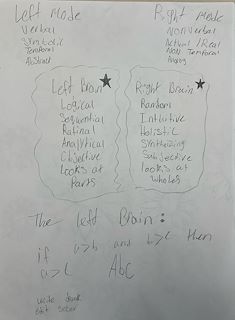 Left Mode
Verbal
Symbolic
Temporal
Abstract
Right Mode
Nonverbal
Actual/Real
Non Temporal
Analog
Left Brain
Logical
Sequential
Ratinal
Analytical
Objective
Looks at
Parts
Right Brain
Random
Intuitive
Holistic
Synthesizing
Subjective
looks at
wholes
The left Brain:
if a>b and b>c then
a>c Abc
write drunk
edit sober